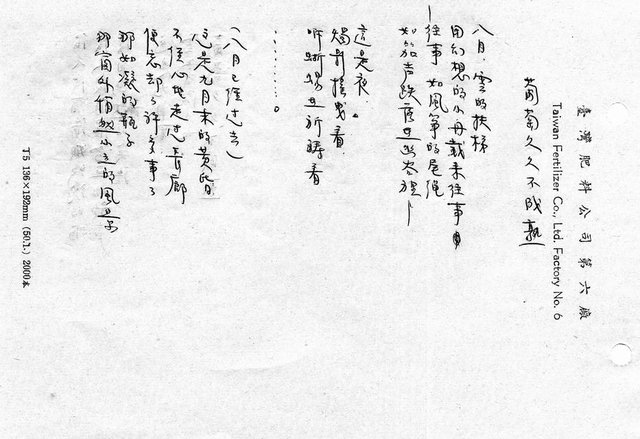 臺灣肥料公司第六廠
Taiwan Fertilizer Co., Ltd. Factory No. 6
葡萄久久不成熟
八月,雲的扶梯
用幻想的小舟載來往事
—往事 如風箏的尾繩
如笳声跌落
這是夜。
燭影搖曳着
祈禱着
………。
(八月已經過去)
這是九月末的黃昏
不經心地走过長廊
便忘却了許多事了
那如凝的瓶子
那窗外悄然小立的風景
T5 136×192mm (50.1.) 2000本